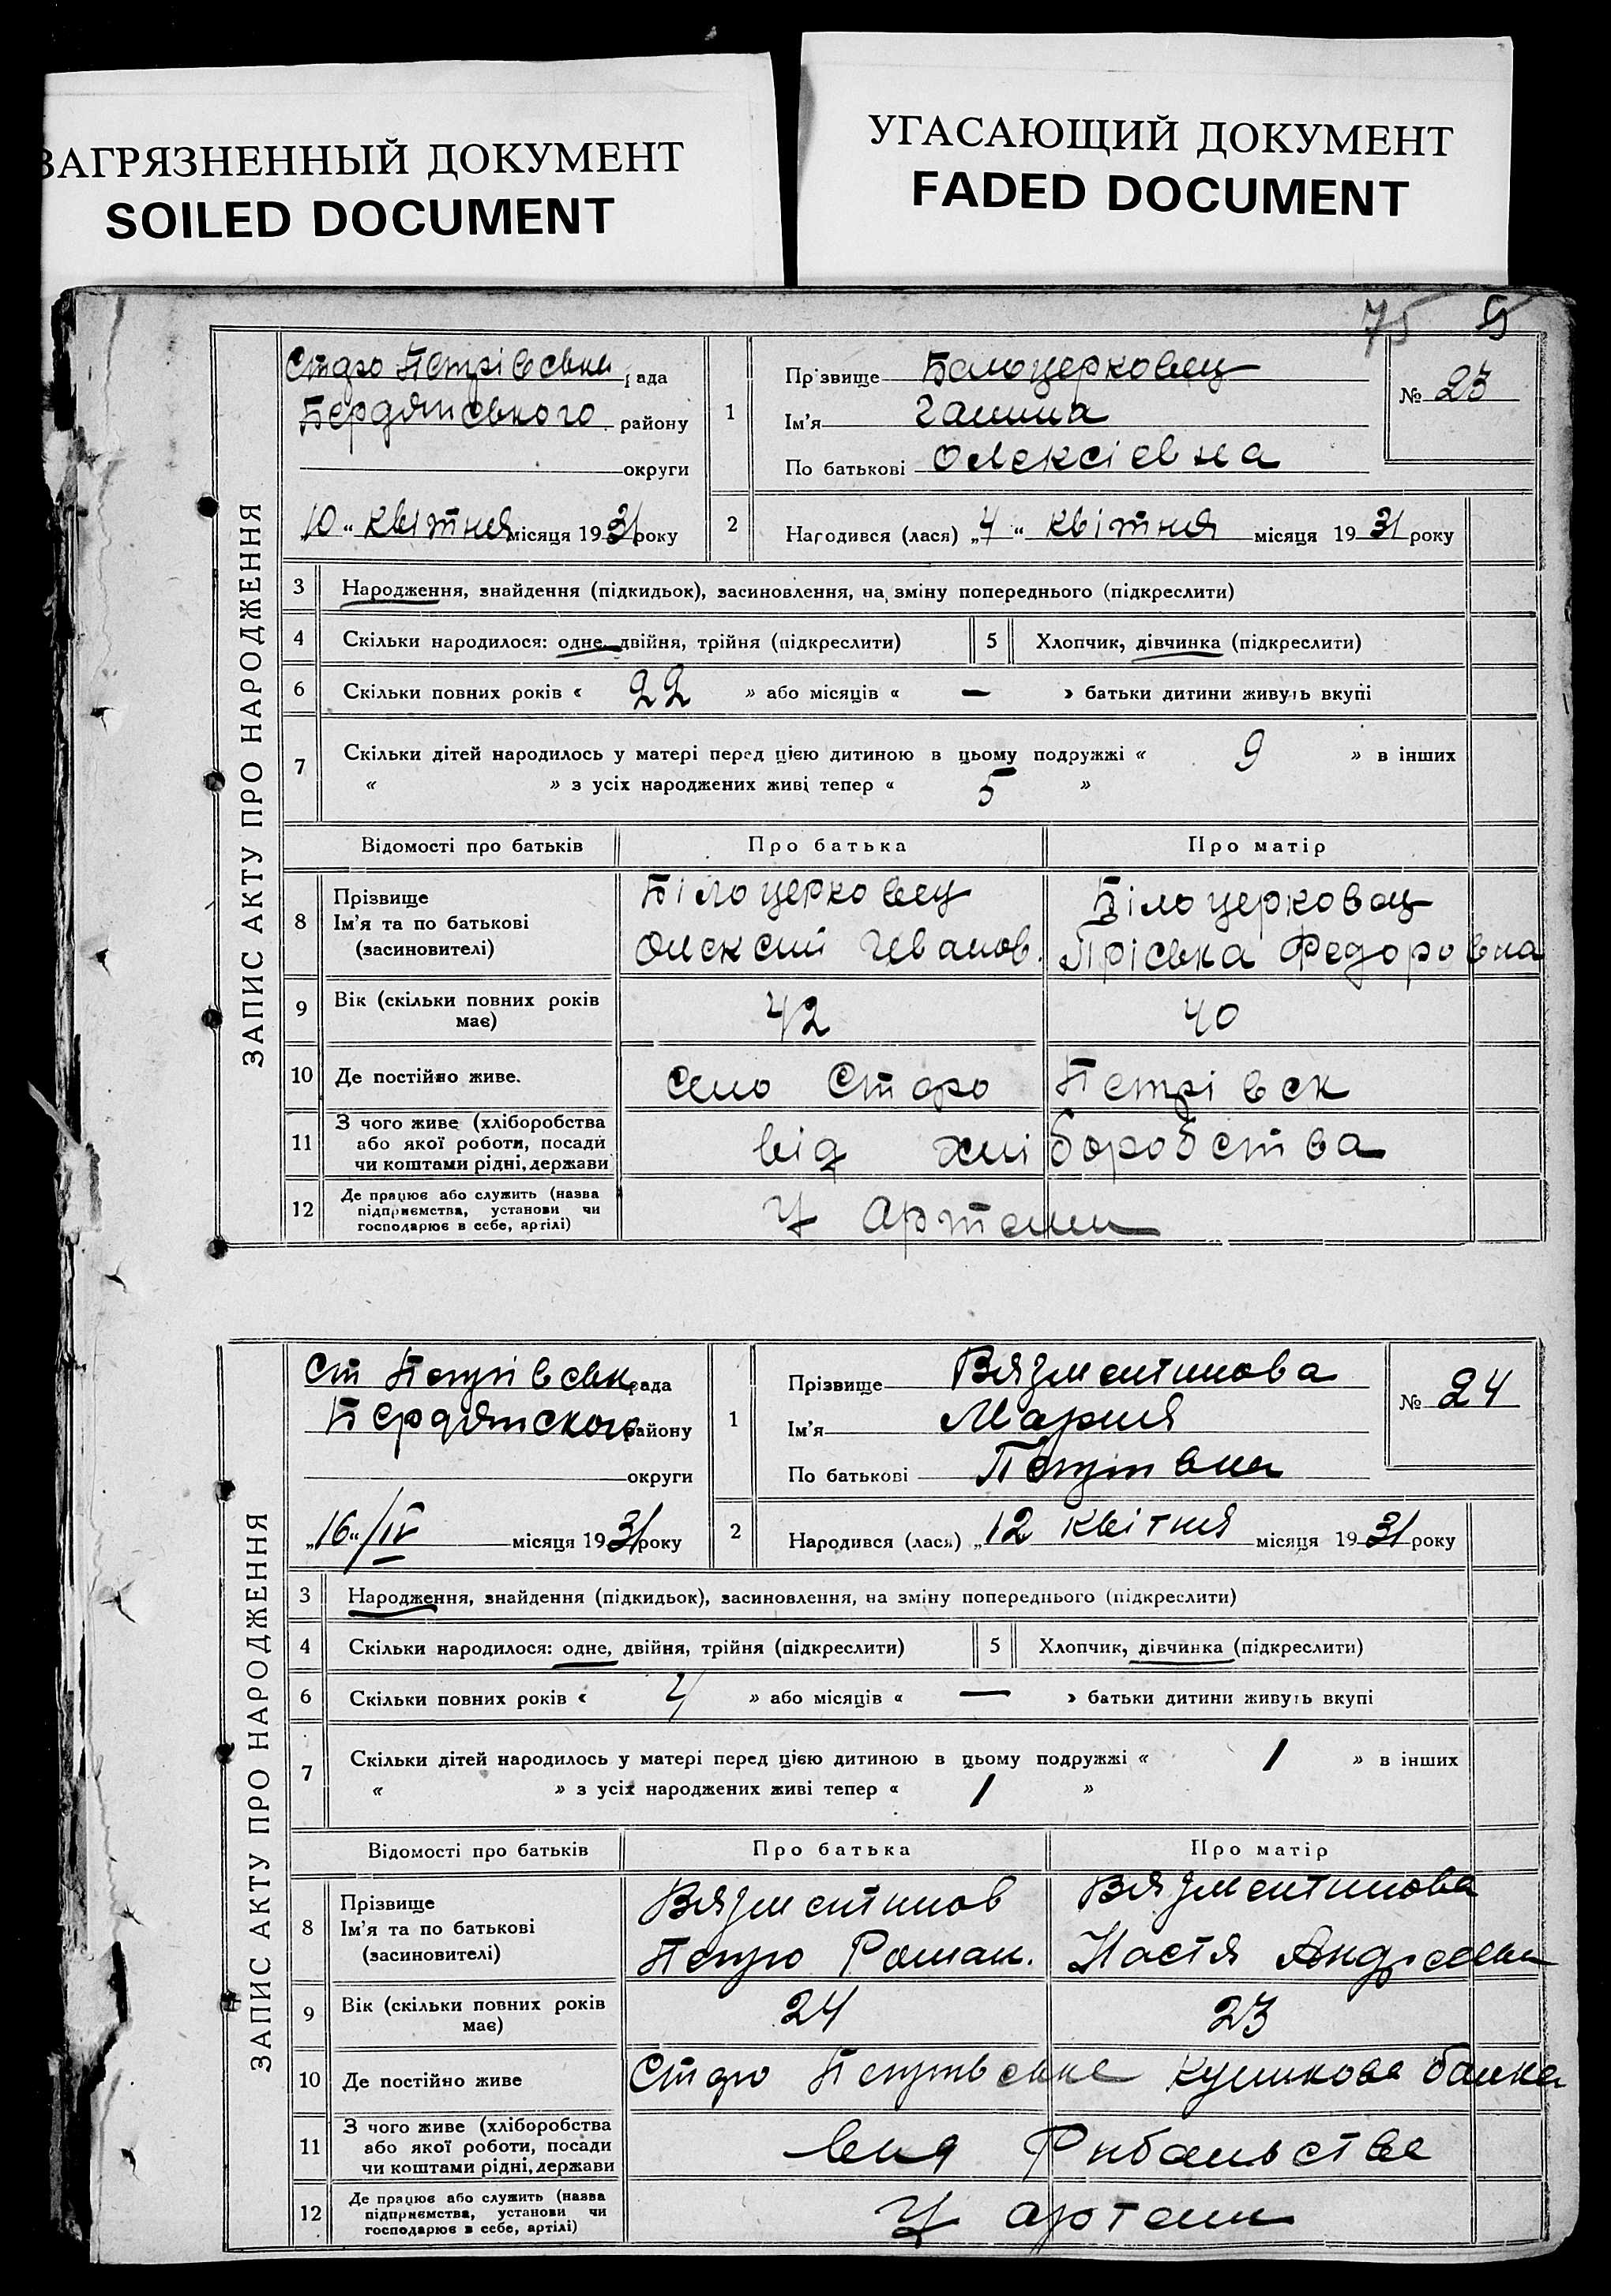 ЗАГРЯЗНЕННЫЙ ДОКУМЕНТ
SOILED DOCUMENT
УГАСАЮЩИЙ ДОКУМЕНТ
FADED DOCUMENT
75 5
ЗАПИС АКТУ ПРО НАРОДЖЕННЯ
Старо Петрівська рада
Бердянського району
округи
"10" квітня місяця 1931 року
1
Прізвище Білоцерковец
Ім'я Ганна
По батькові Олексіевна
№ 23
2 Народився (лася) „4" квітня місяця 1931 року
3 Народження, знайдення (підкидьок), засиновлення, на зміну попереднього (підкреслити)
4 Скільки народилося: одне, двійня, трійня (підкреслити) 5 Хлопчик, дівчинка (підкреслити)
6 Скільки повних років « 22 » або місяців « — » батьки дитини живуть вкупі
7 Скільки дітей народилось у матері перед цією дитиною в цьому подружжі « 9 » в інших
« » з усіх народжених живі тепер « 5 »
Відомості про батьків Про батька Про матір
8 Прізвище
Ім'я та по батькові
(засиновителі)
Білоцерковец
Олексий Иванов.
Білоцерковец
Пріська Федоровна
9 Вік (скільки повних років
має)
42 40
10 Де постійно живе. село Старо Петрівск
11 З чого живе (хліборобства
або якої роботи, посади
чи коштами рідні, держави
від хліборобства
12 Де працює або служить (назва
підприємства, установи чи
господарює в себе, артілі)
У артели
ЗАПИС АКТУ ПРО НАРОДЖЕННЯ
Ст Петрівськ рада
Бердянского району
округи
„16" /IV місяця 1931 року
1
Прізвище Вязментинова
Ім'я Мария
По батькові Петривна
№ 24
2 Народився (лася) „12 квітня місяця 1931 року
3 Народження, знайдення (підкидьок), засиновлення, на зміну попереднього (підкреслити)
4 Скільки народилося: одне, двійня, трійня (підкреслити) 5 Хлопчик, дівчинка (підкреслити)
6 Скільки повних років « 4 » або місяців « — » батьки дитини живуть вкупі
7 Скільки дітей народилось у матері перед цією дитиною в цьому подружжі « 1 » в інших
« » з усіх народжених живі тепер « 1 »
Відомості про батьків Про батька Про матір
8 Прізвище
Ім'я та по батькові
(засиновителі)
Вязментинов
Петро Роман.
Вязментинова
Настя Андреевна
9 Вік (скільки повних років
має)
24 23
10 Де постійно живе Старо Петривська Куликова балка
11 З чого живе (хліборобства
або якої роботи, посади
чи коштами рідні, держави
вид Рибальства
12 Де працює або служить (назва
підприємства, установи чи
господарює в себе, артілі)
У артели